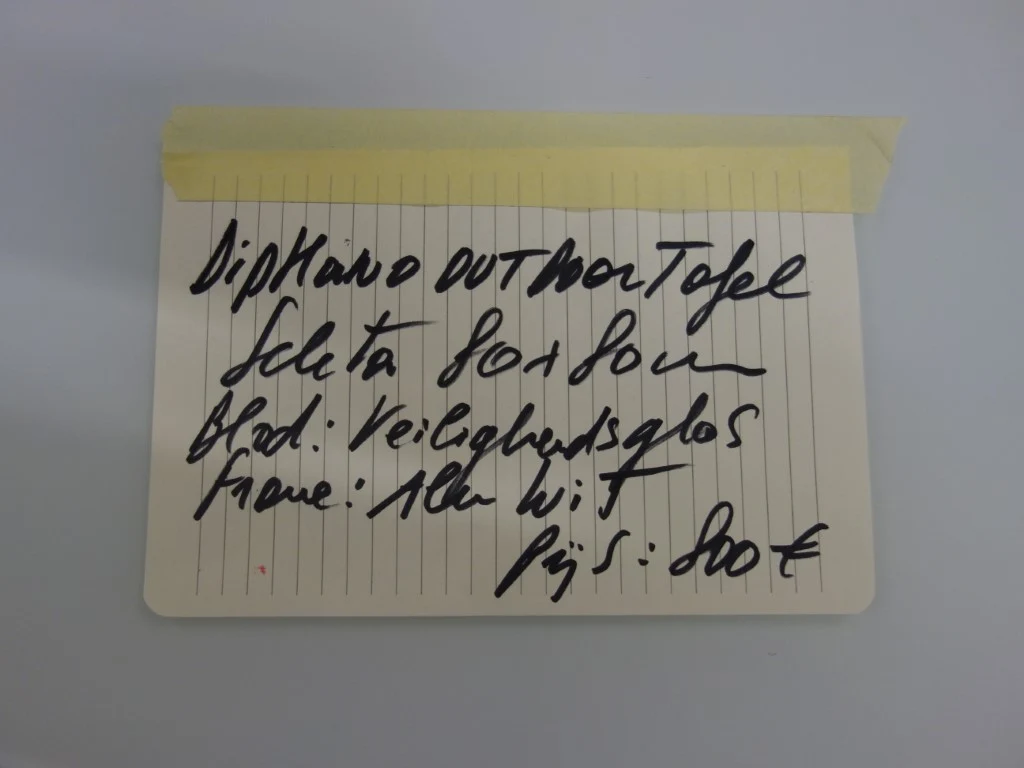 Diphano OUTDoor Tafel
Seleta 80x80cm
Blad: Veiligheidsglas
Frame: Alu Wit
Prijs: 800 €